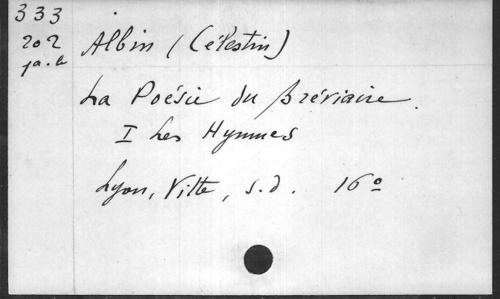 333
202
Albin (Célestin)
La Poésie du Bréviaire.
I Les Hymnes
Lyon, Vitte, s.d. 16°